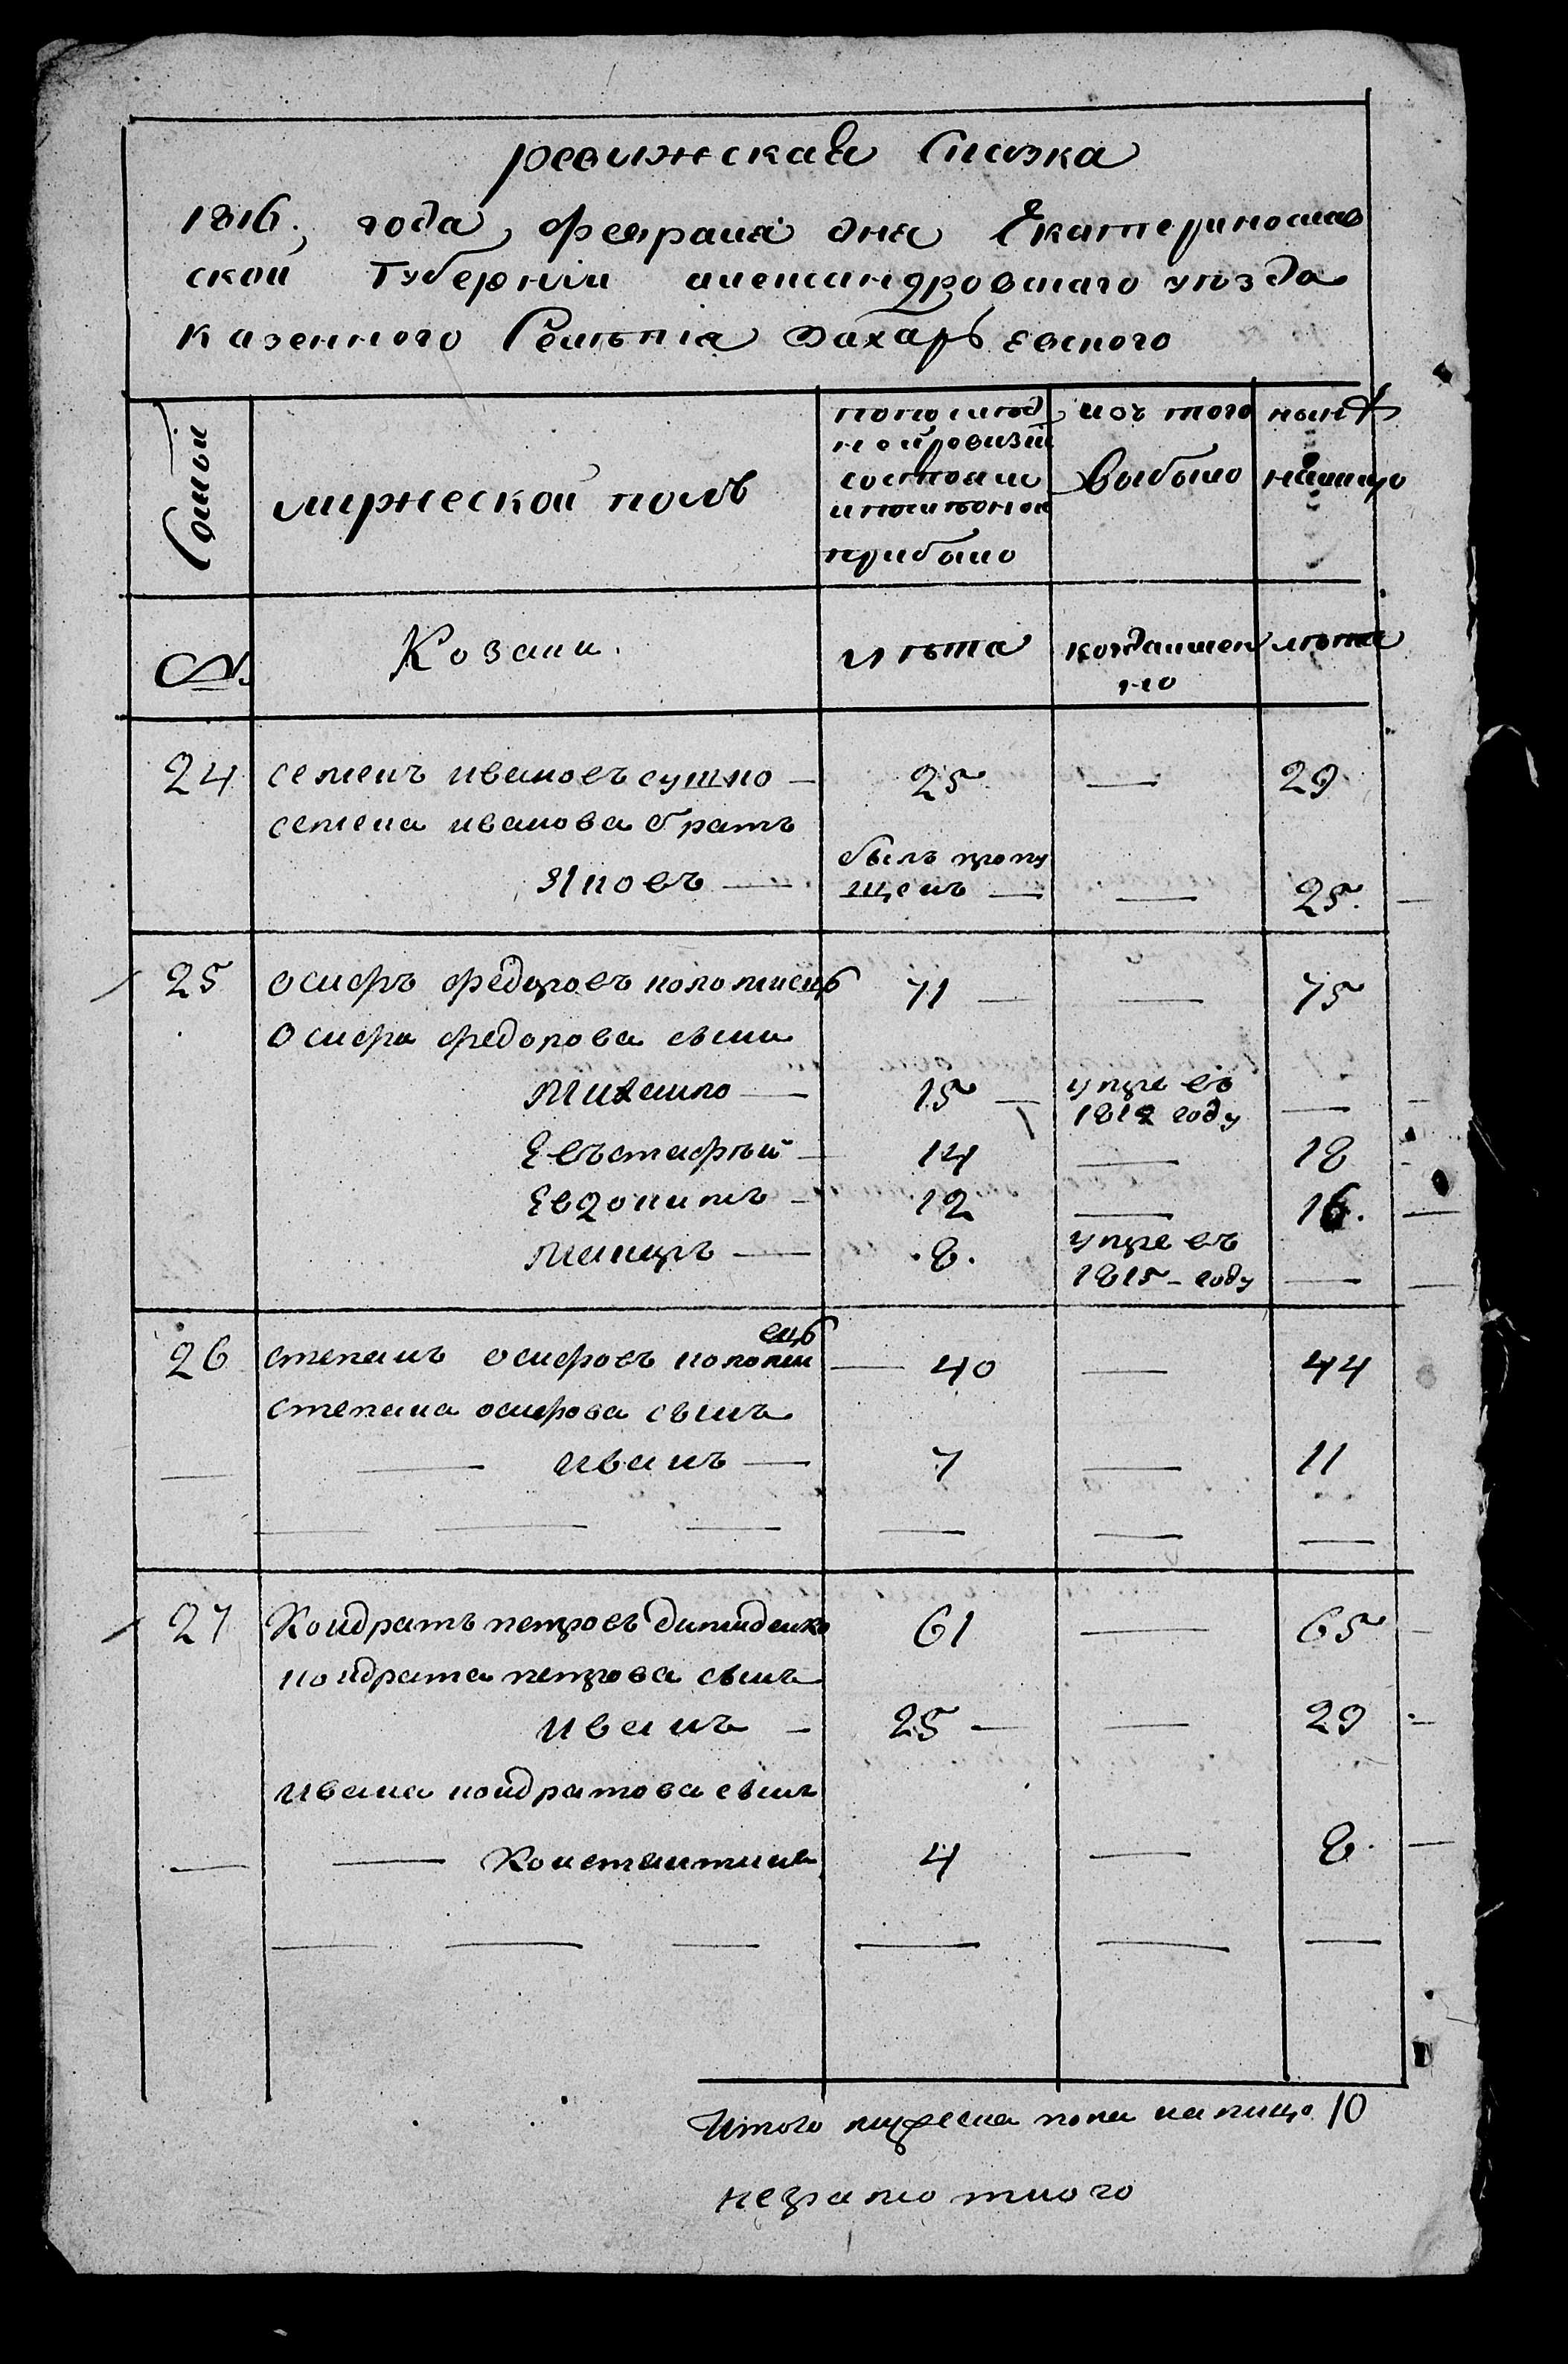 ревижская Сказка
1816. года, февраля дня Екатеринослав
ской Губерніи александровскаго уѣзда
казенного Селенія Захарьевского
Семьи
мужеской полъ
по послѣд
ней ревизіи
состояли
и послѣ оной
прибыло
изъ того
выбыло
нынѣ
налицо
№.
Козаки.
лѣта
когда имен
но
лѣта
24 семенъ ивановъ сушко — 25 — 29
семена иванова братъ
Яковъ — былъ пропу
щенъ — — 25.
25 осифъ федоровъ коломиецъ 71 — — 75
Осифа федорова сыны
Михайло — 15 — умре въ
1812 году —
Евъстафий — 14 — 18
Евдокимъ — 12 — 16.
Макаръ — 8. умре въ
1815 – году —
26 степанъ осифовъ коломи
ецъ — 40 — 44
степана осифова сынъ
— — иванъ — 7 — 11
27 Кондратъ петровъ димиденко 61 — 65
кондрата петрова сынъ
иванъ — 25 — — 29
ивана кондратова сынъ
— — Констянтинъ 4 — 8.
Итого мужеска пола налицо 10
неграмотного